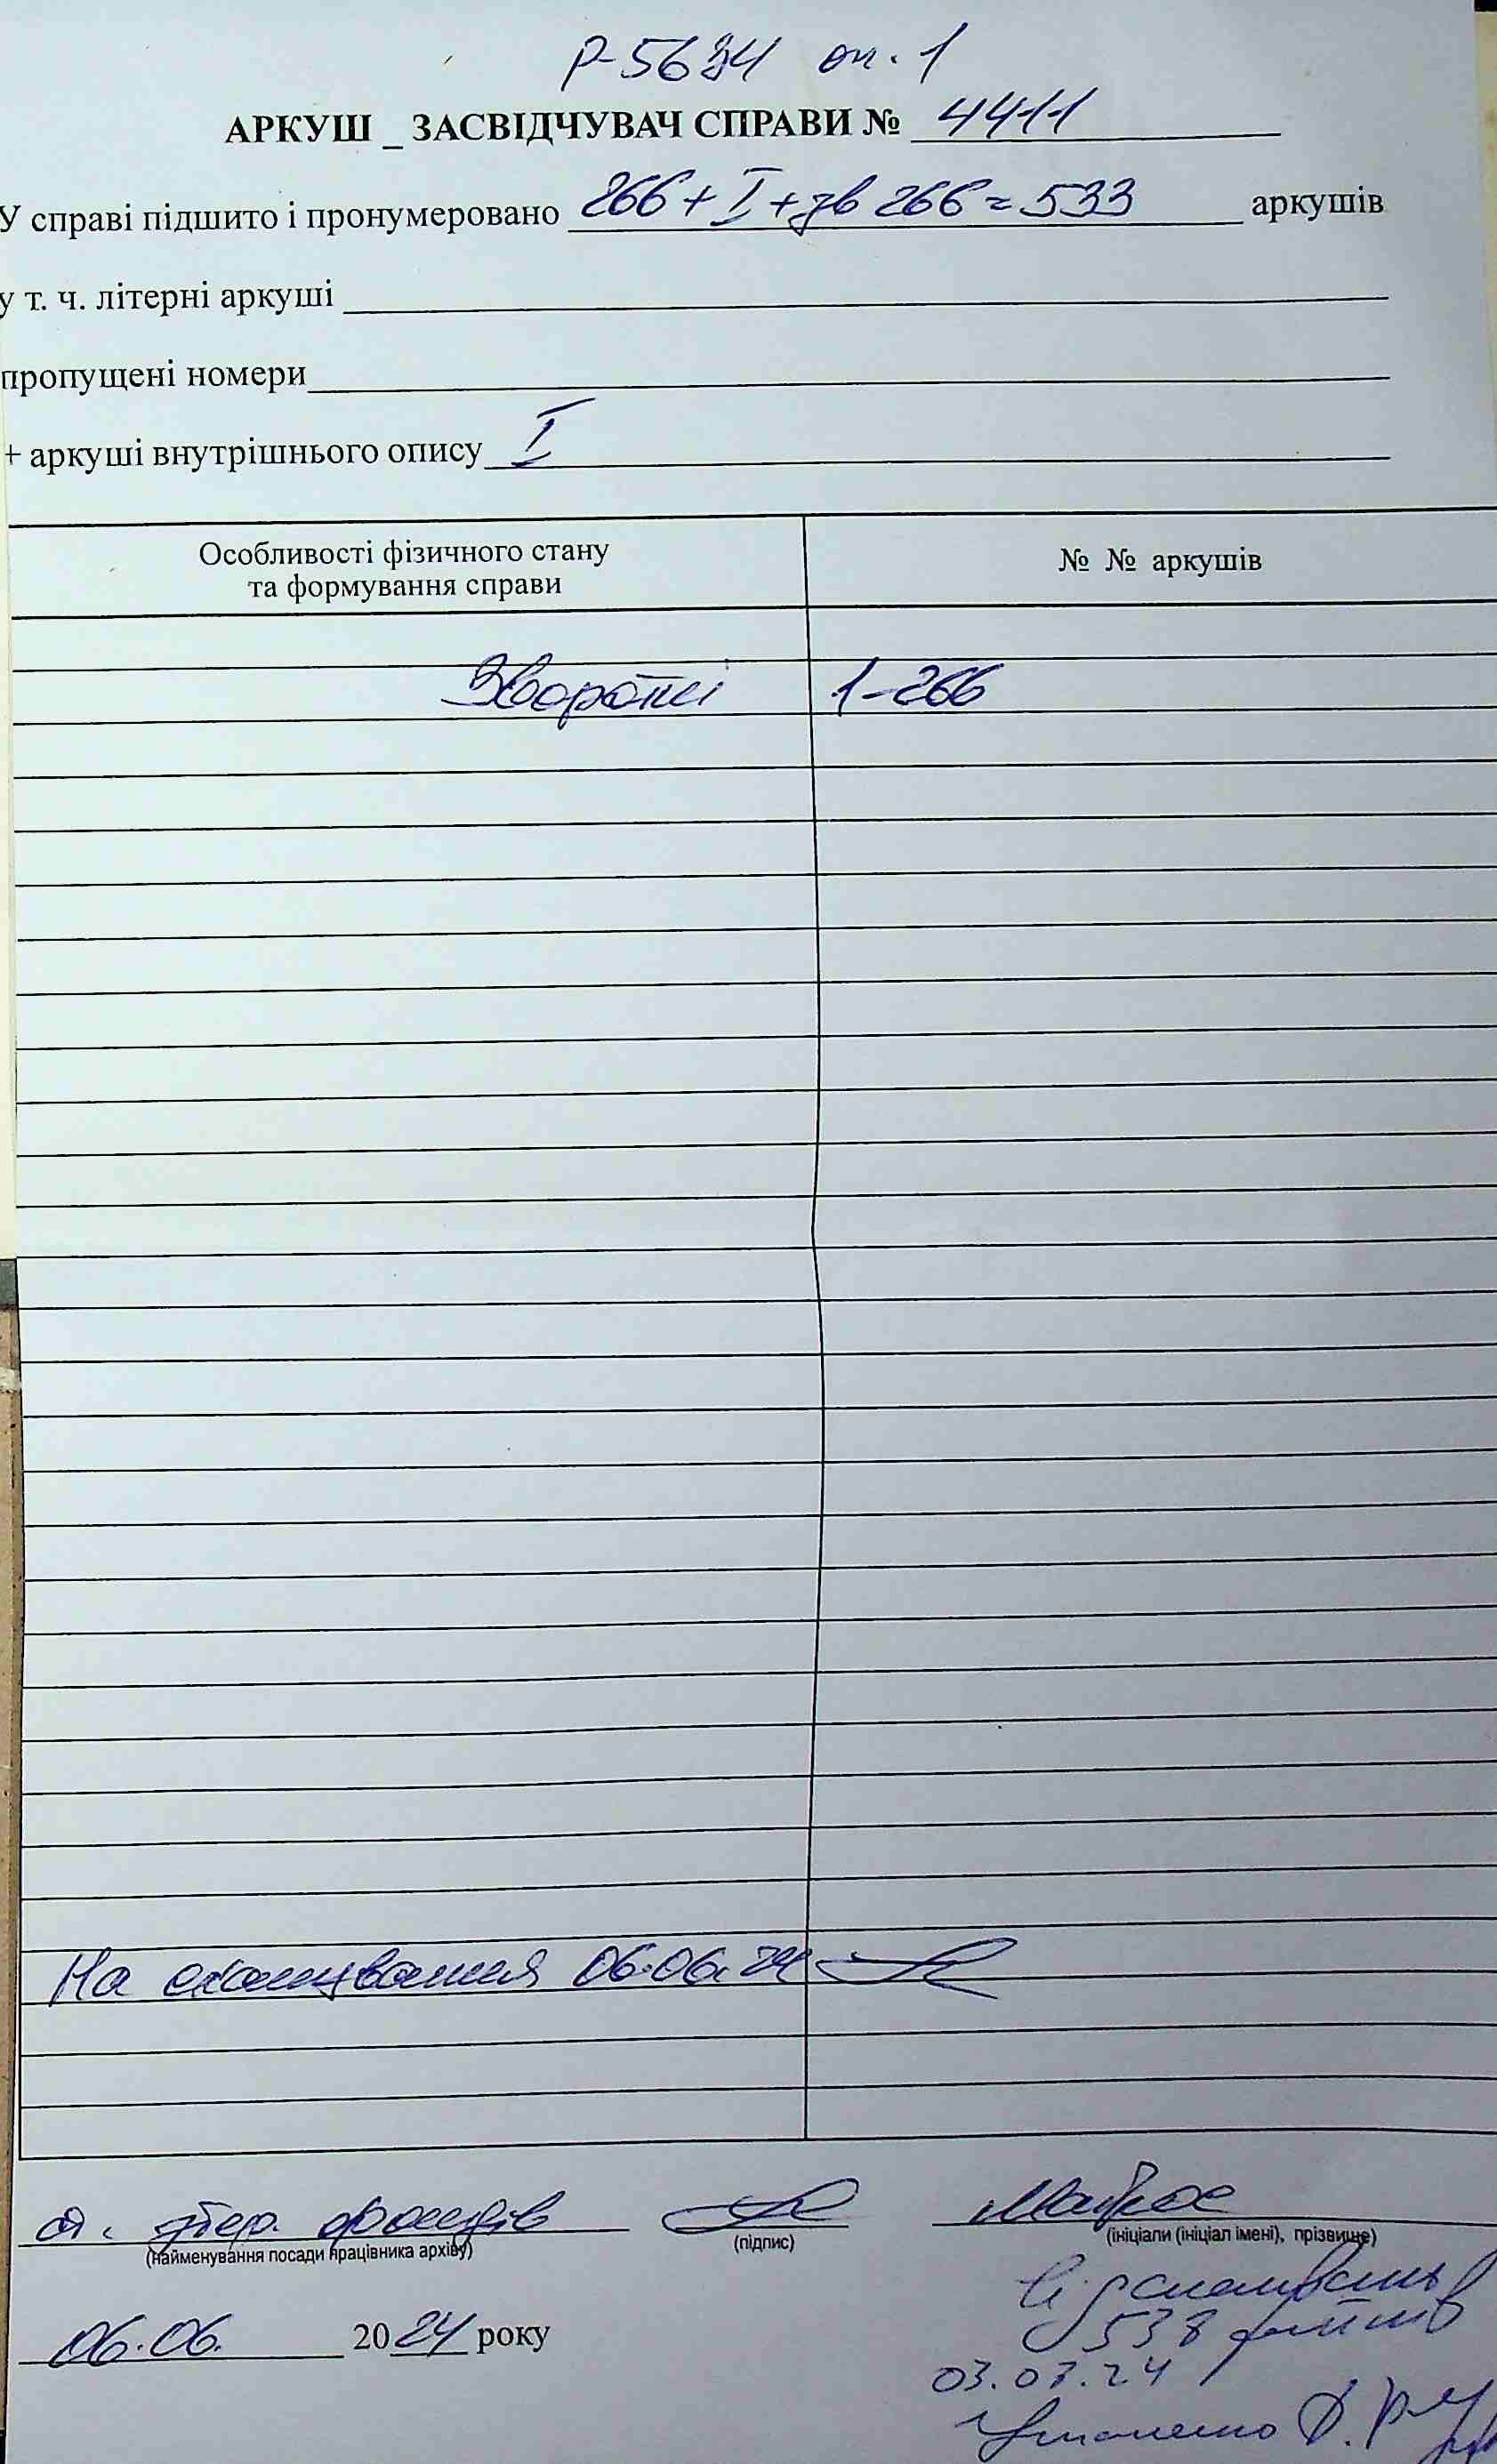 Р-5684 оп. 1
АРКУШ _ ЗАСВІДЧУВАЧ СПРАВИ № 4411
У справі підшито і пронумеровано 266 + I + зв 266 = 533 аркушів
у т. ч. літерні аркуші
пропущені номери
+ аркуші внутрішнього опису I
Особливості фізичного стану та формування справи
№ № аркушів
Зворотні 1-266
На сканування 06.06.24
збер. фондів
(найменування посади працівника архіву)
(підпис)
(ініціали (ініціал імені), прізвище)
06.06. 2024 року
538 файлів
03.07.24